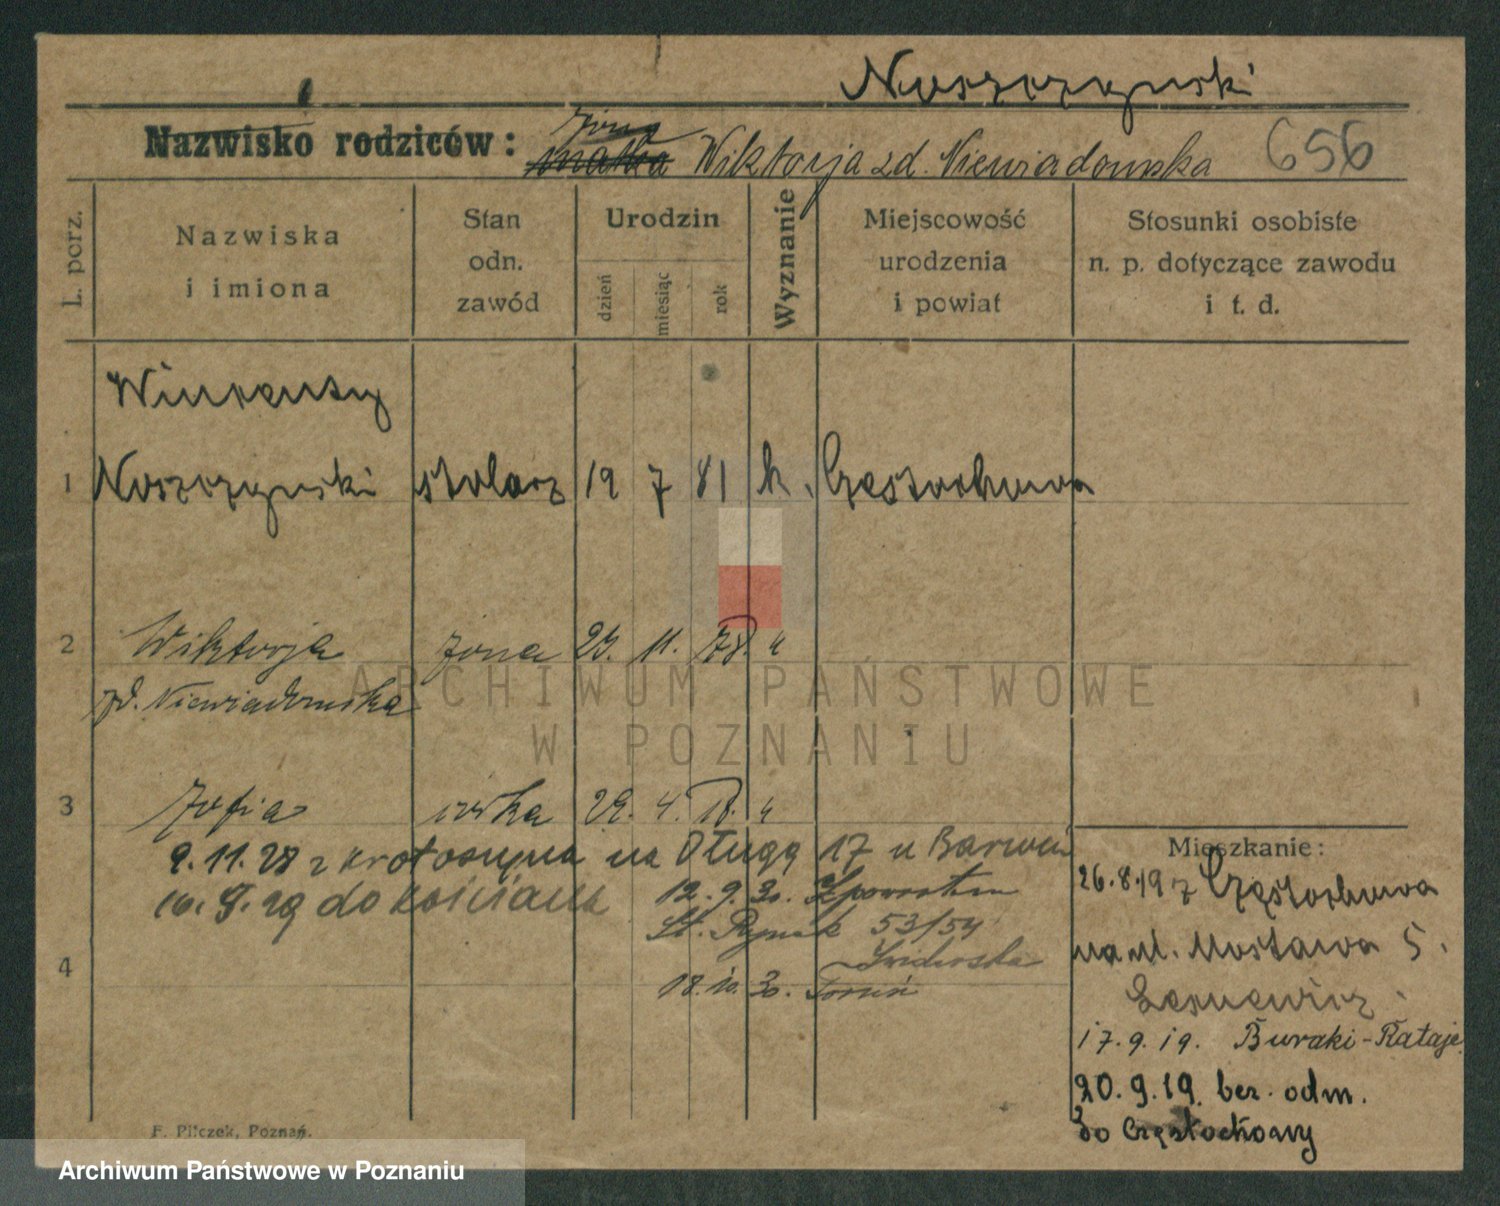 Noszczyński
żona
Nazwisko rodziców: matka Wiktorja zd. Niewiadomska 656
L. porz.
Nazwiska
i imiona
Stan
odn.
zawód
Urodzin
dzień
miesiąc
rok
Wyznanie
Miejscowość
urodzenia
i powiat
Stosunki osobiste
n. p. dotyczące zawodu
i t. d.
Wincenty
1 Noszczyński stolarz 19 7 81 k. Częstochowa
2 Wiktorja żona 23. 11. 78. "
zd. Niewiadomska
3 Zofia córka 29. 4. 18. "
9.11.28 z Krotoszyna na Długą 17 u Barwiń
10. 9. 29 do Kościana 12. 9. 30. Zpowrotem
St. Rynek 53/54
Świderska
4 18. 10. 30. Toruń
Mieszkanie:
26.8.19 z Częstochowa
na ul. Mostawa 5.
17. 9. 19. Buraki-Rataje
20. 9. 19. bez. odm.
do Częstochowy
F. Pilczek, Poznań.
ARCHIWUM PAŃSTWOWE
W POZNANIU
Archiwum Państwowe w Poznaniu